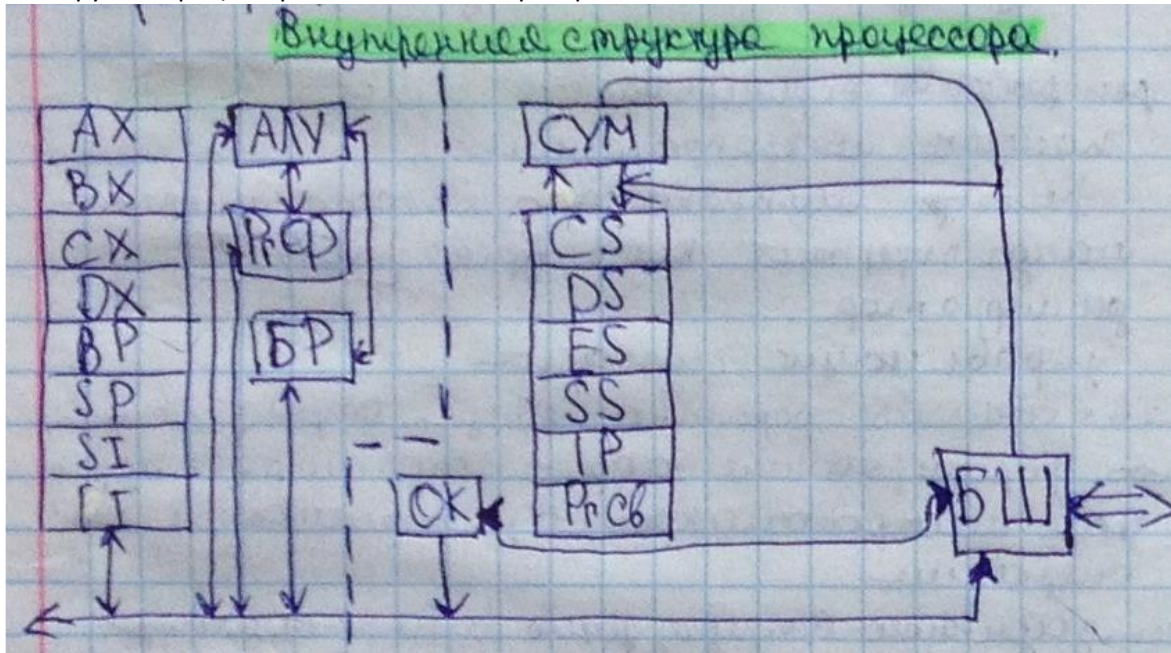 Внутренняя структура процессора.
AX
BX
CX
DX
BP
SP
SI
АЛУ
РгФ
БР
ОК
СУМ
CS
DS
ES
SS
IP
РгСв
БШ